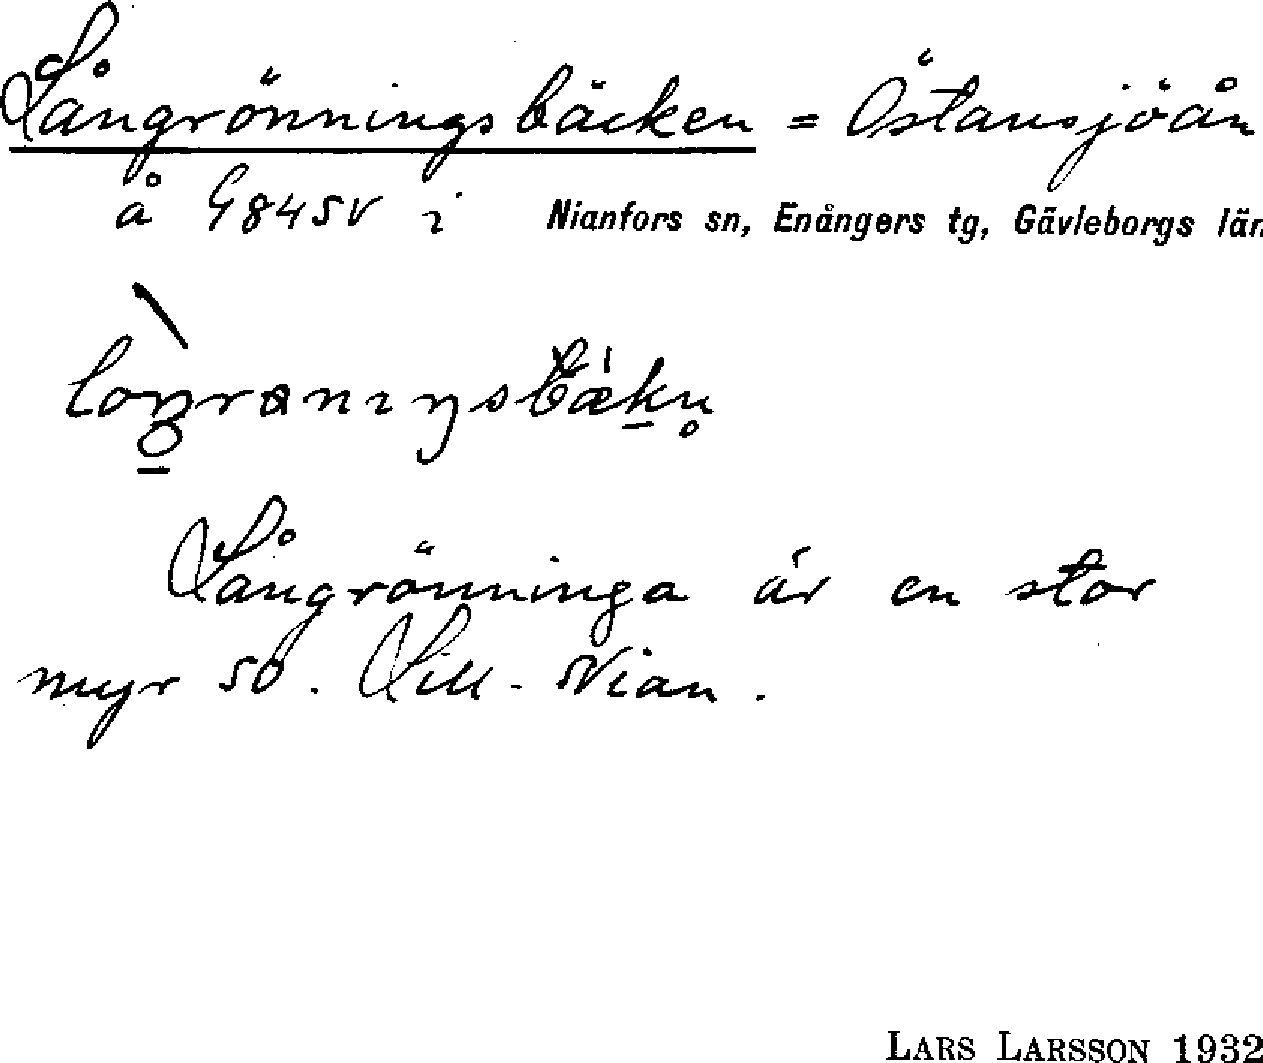 Långrönningsbäcken = Östansjöån
å G84SV i Nianfors sn, Enångers tg, Gävleborgs län
Långrönninga är en stor
myr SO. Lill-Nian.
LARS LARSSON 1932